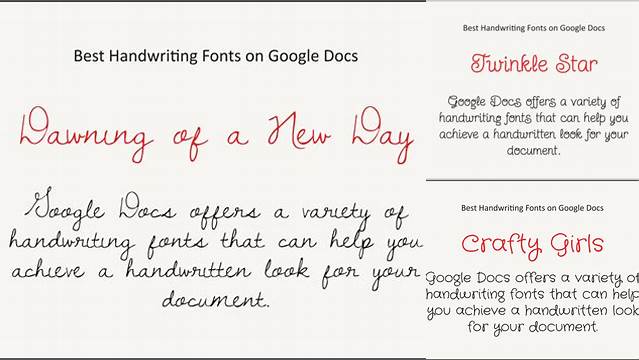 Best Handwriting Fonts on Google Docs
Dawning of a New Day
Google Docs offers a variety of
handwriting fonts that can help you
achieve a handwritten look for your
document.
Best Handwriting Fonts on Google Docs
Twinkle Star
Google Docs offers a variety of
handwriting fonts that can help you
achieve a handwritten look for your
document.
Best Handwriting Fonts on Google Docs
Crafty Girls
Google Docs offers a variety of
handwriting fonts that can help
you achieve a handwritten look
for your document.